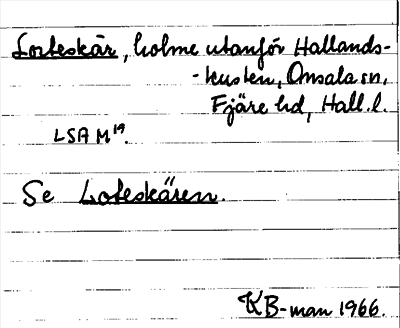 Lorteskär, holme utanför Hallands-
-kusten, Onsala sn,
Fjäre hd, Hall. l.
LSA M¹⁹.
Se Loteskären.
KB-man 1966.